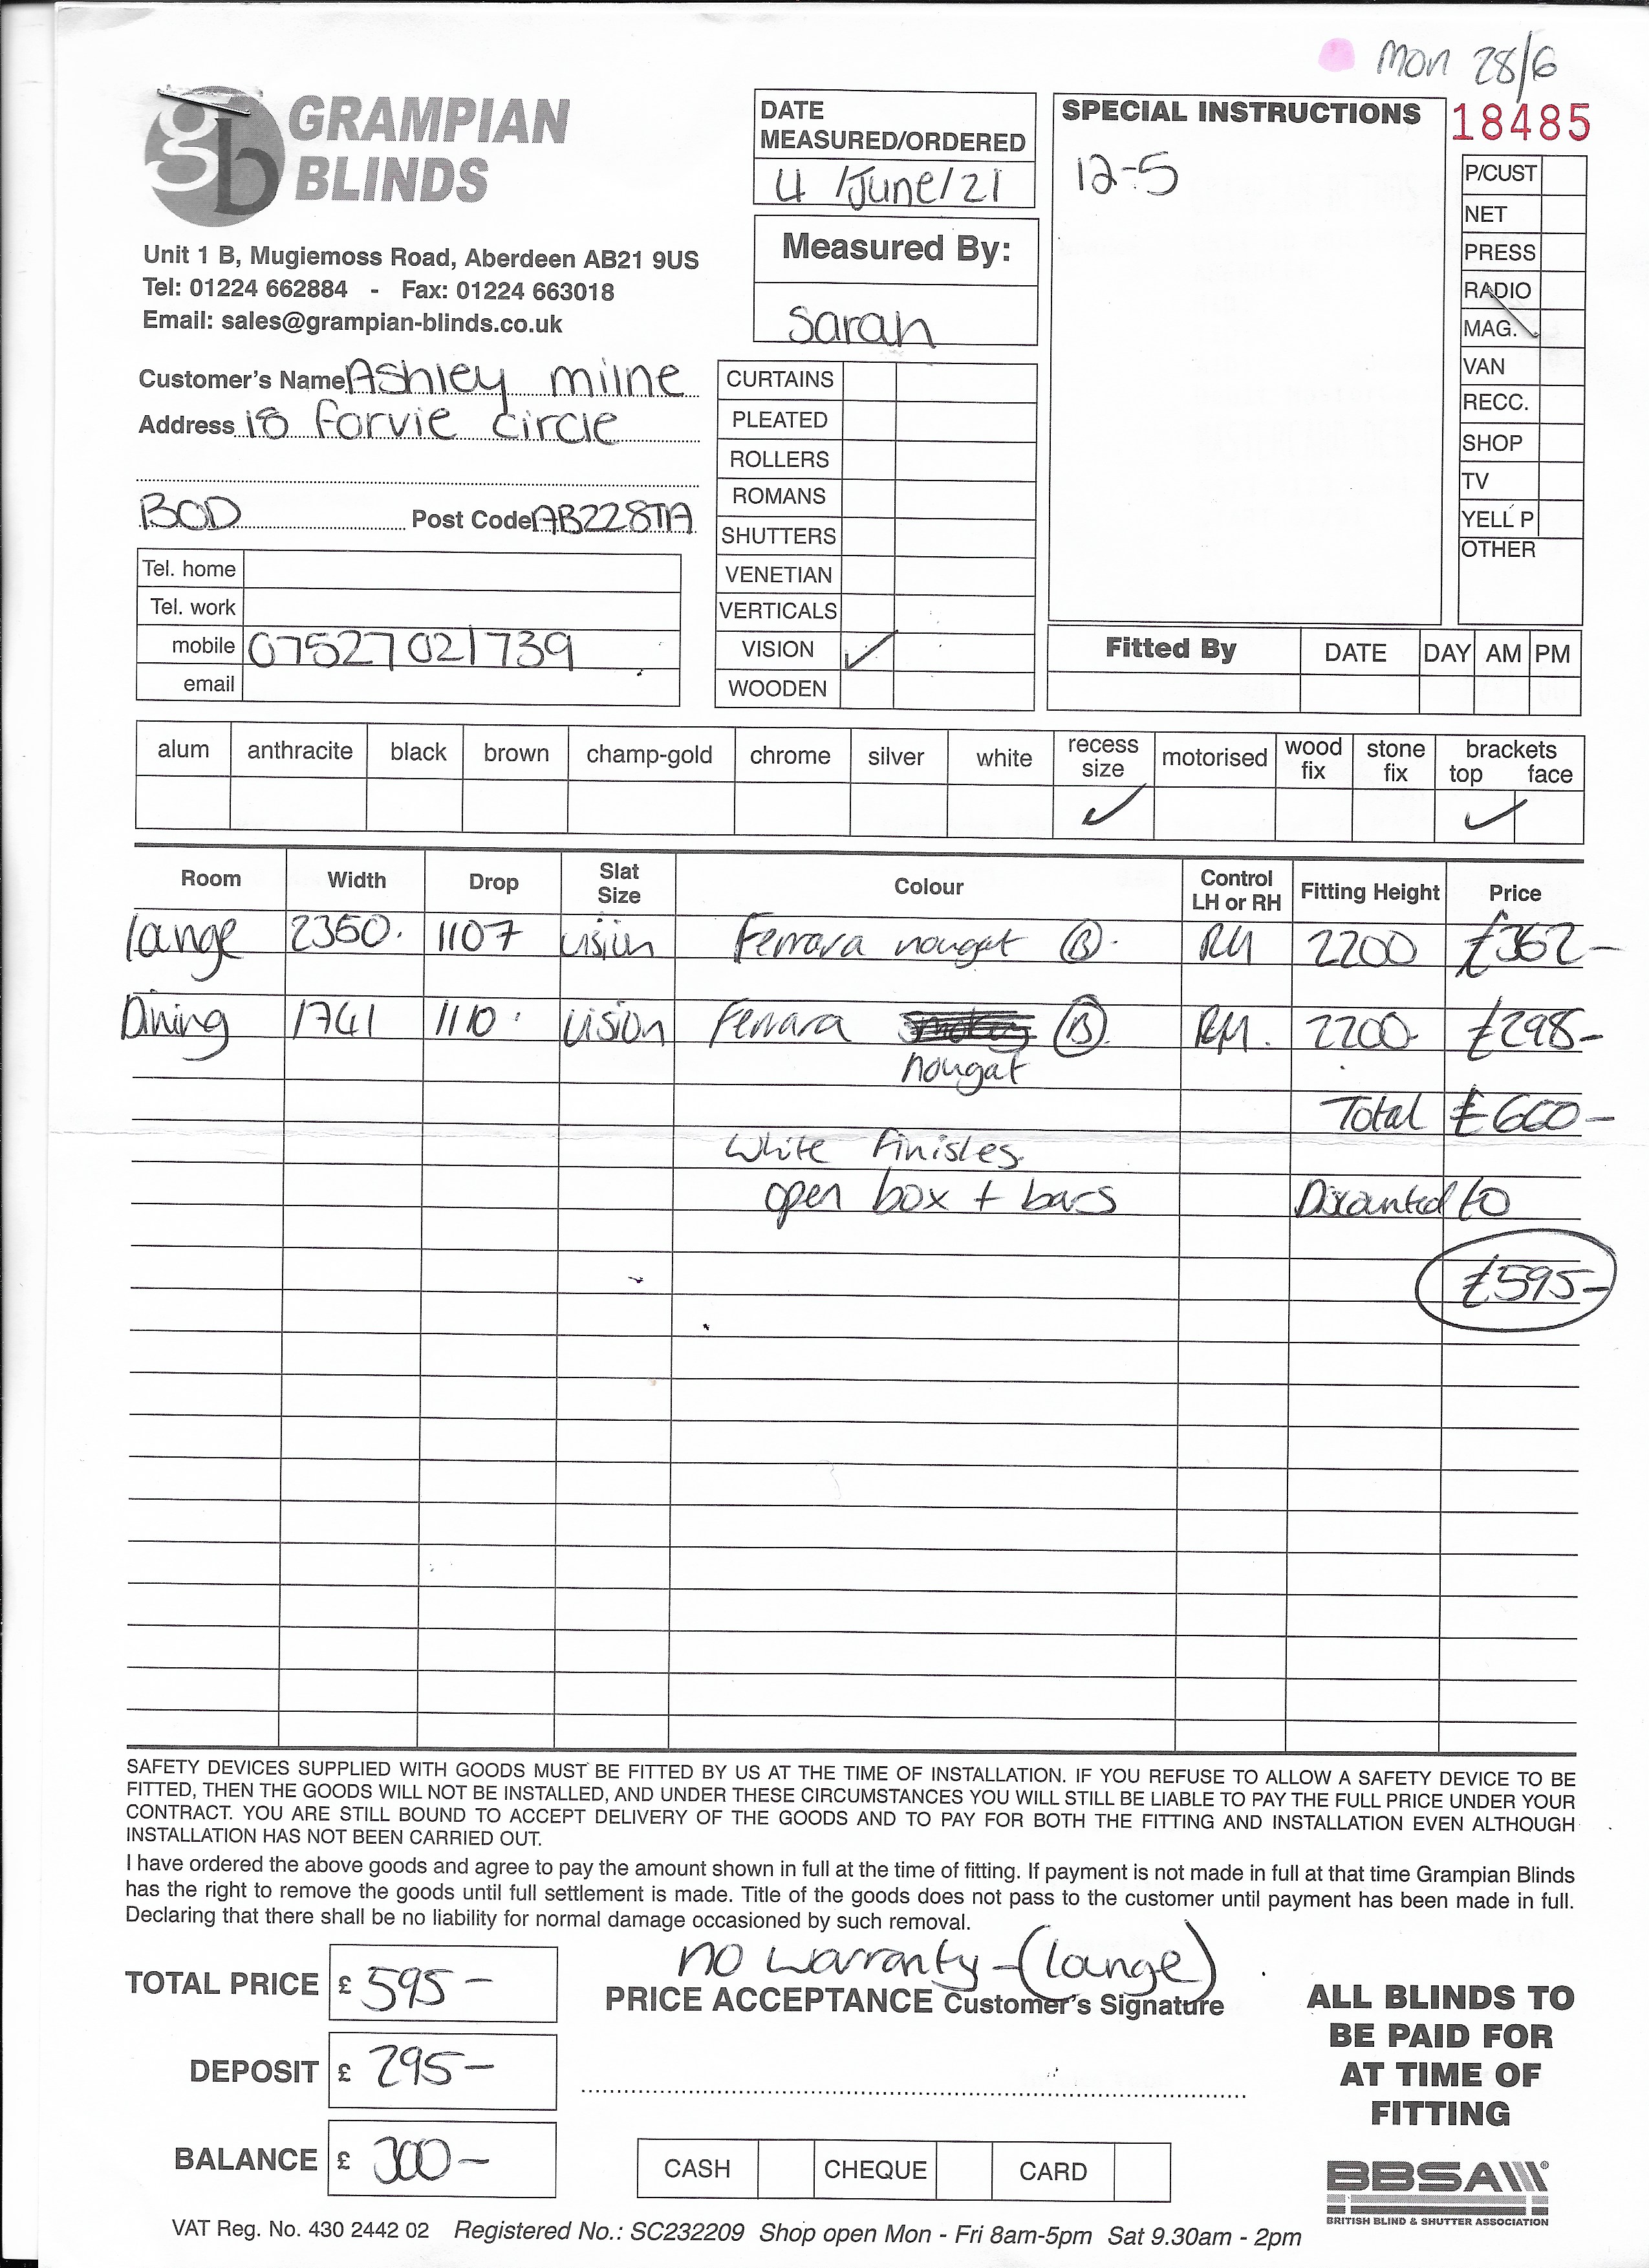 Mon 28/6
GRAMPIAN
BLINDS
gb
Unit 1 B, Mugiemoss Road, Aberdeen AB21 9US
Tel: 01224 662884 - Fax: 01224 663018
Email: sales@grampian-blinds.co.uk
DATE
MEASURED/ORDERED
4 /June/21
Measured By:
Sarah
SPECIAL INSTRUCTIONS
12-5
18485
P/CUST
NET
PRESS
RADIO
MAG.
VAN
RECC.
SHOP
TV
YELL P
OTHER
Customer's Name Ashley milne
Address 18 forvie circle
BOD Post Code AB228TA
Tel. home
Tel. work
mobile 07527021739
email
CURTAINS
PLEATED
ROLLERS
ROMANS
SHUTTERS
VENETIAN
VERTICALS
VISION ✓
WOODEN
Fitted By DATE DAY AM PM
alum anthracite black brown champ-gold chrome silver white recess size motorised wood fix stone fix brackets top face
✓ ✓
Room Width Drop Slat Size Colour Control LH or RH Fitting Height Price
lounge 2350. 1107 vision Ferrara nougat (B). RH 2200 £362-
Dining 1741 1110. vision Ferrara (B) RH. 2200 £298-
nougat
Total £660-
White Finishes
open box + bars Discounted to
£595-
SAFETY DEVICES SUPPLIED WITH GOODS MUST BE FITTED BY US AT THE TIME OF INSTALLATION. IF YOU REFUSE TO ALLOW A SAFETY DEVICE TO BE
FITTED, THEN THE GOODS WILL NOT BE INSTALLED, AND UNDER THESE CIRCUMSTANCES YOU WILL STILL BE LIABLE TO PAY THE FULL PRICE UNDER YOUR
CONTRACT. YOU ARE STILL BOUND TO ACCEPT DELIVERY OF THE GOODS AND TO PAY FOR BOTH THE FITTING AND INSTALLATION EVEN ALTHOUGH
INSTALLATION HAS NOT BEEN CARRIED OUT.
I have ordered the above goods and agree to pay the amount shown in full at the time of fitting. If payment is not made in full at that time Grampian Blinds
has the right to remove the goods until full settlement is made. Title of the goods does not pass to the customer until payment has been made in full.
Declaring that there shall be no liability for normal damage occasioned by such removal.
no warranty - (lounge)
TOTAL PRICE £ 595-
PRICE ACCEPTANCE Customer's Signature
DEPOSIT £ 295-
BALANCE £ 300-
CASH CHEQUE CARD
ALL BLINDS TO
BE PAID FOR
AT TIME OF
FITTING
BBSA
BRITISH BLIND & SHUTTER ASSOCIATION
VAT Reg. No. 430 2442 02 Registered No.: SC232209 Shop open Mon - Fri 8am-5pm Sat 9.30am - 2pm